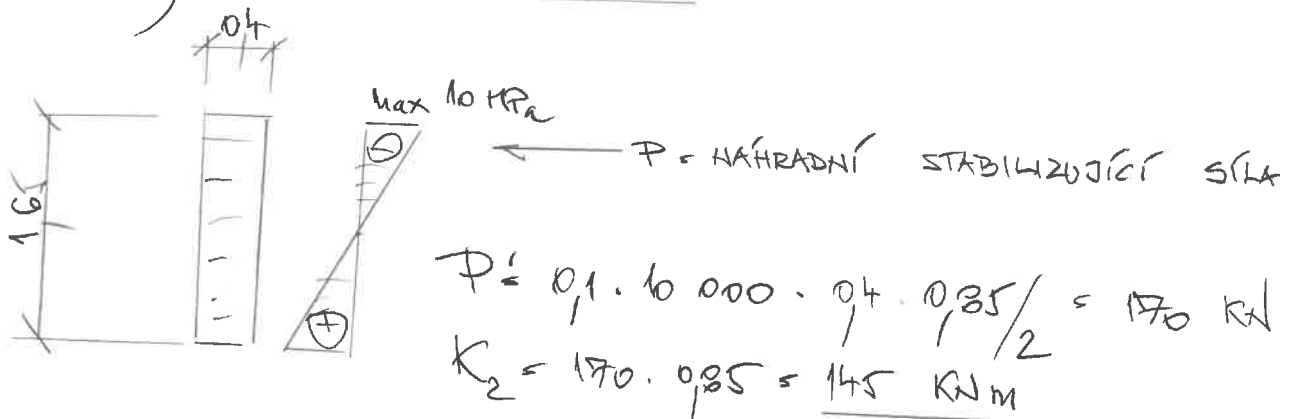 04
max 10 MPa
⊖
P = NÁHRADNÍ STABILIZUJÍCÍ SÍLA
1 65
⊕
P' = 0,1 . 10 000 . 0,4 . 0,85/2 = 170 KN
K₂ = 170 . 0,85 = 145 KNm